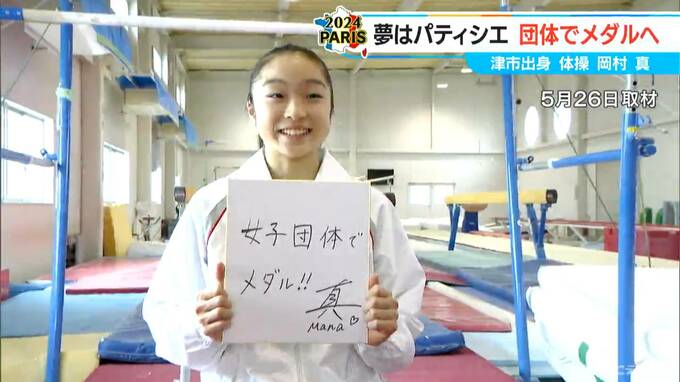 2024
PARIS
夢はパティシエ 団体でメダルへ
津市出身 体操 岡村 真
5月26日取材
女子団体で
メダル!!
真
mana♡